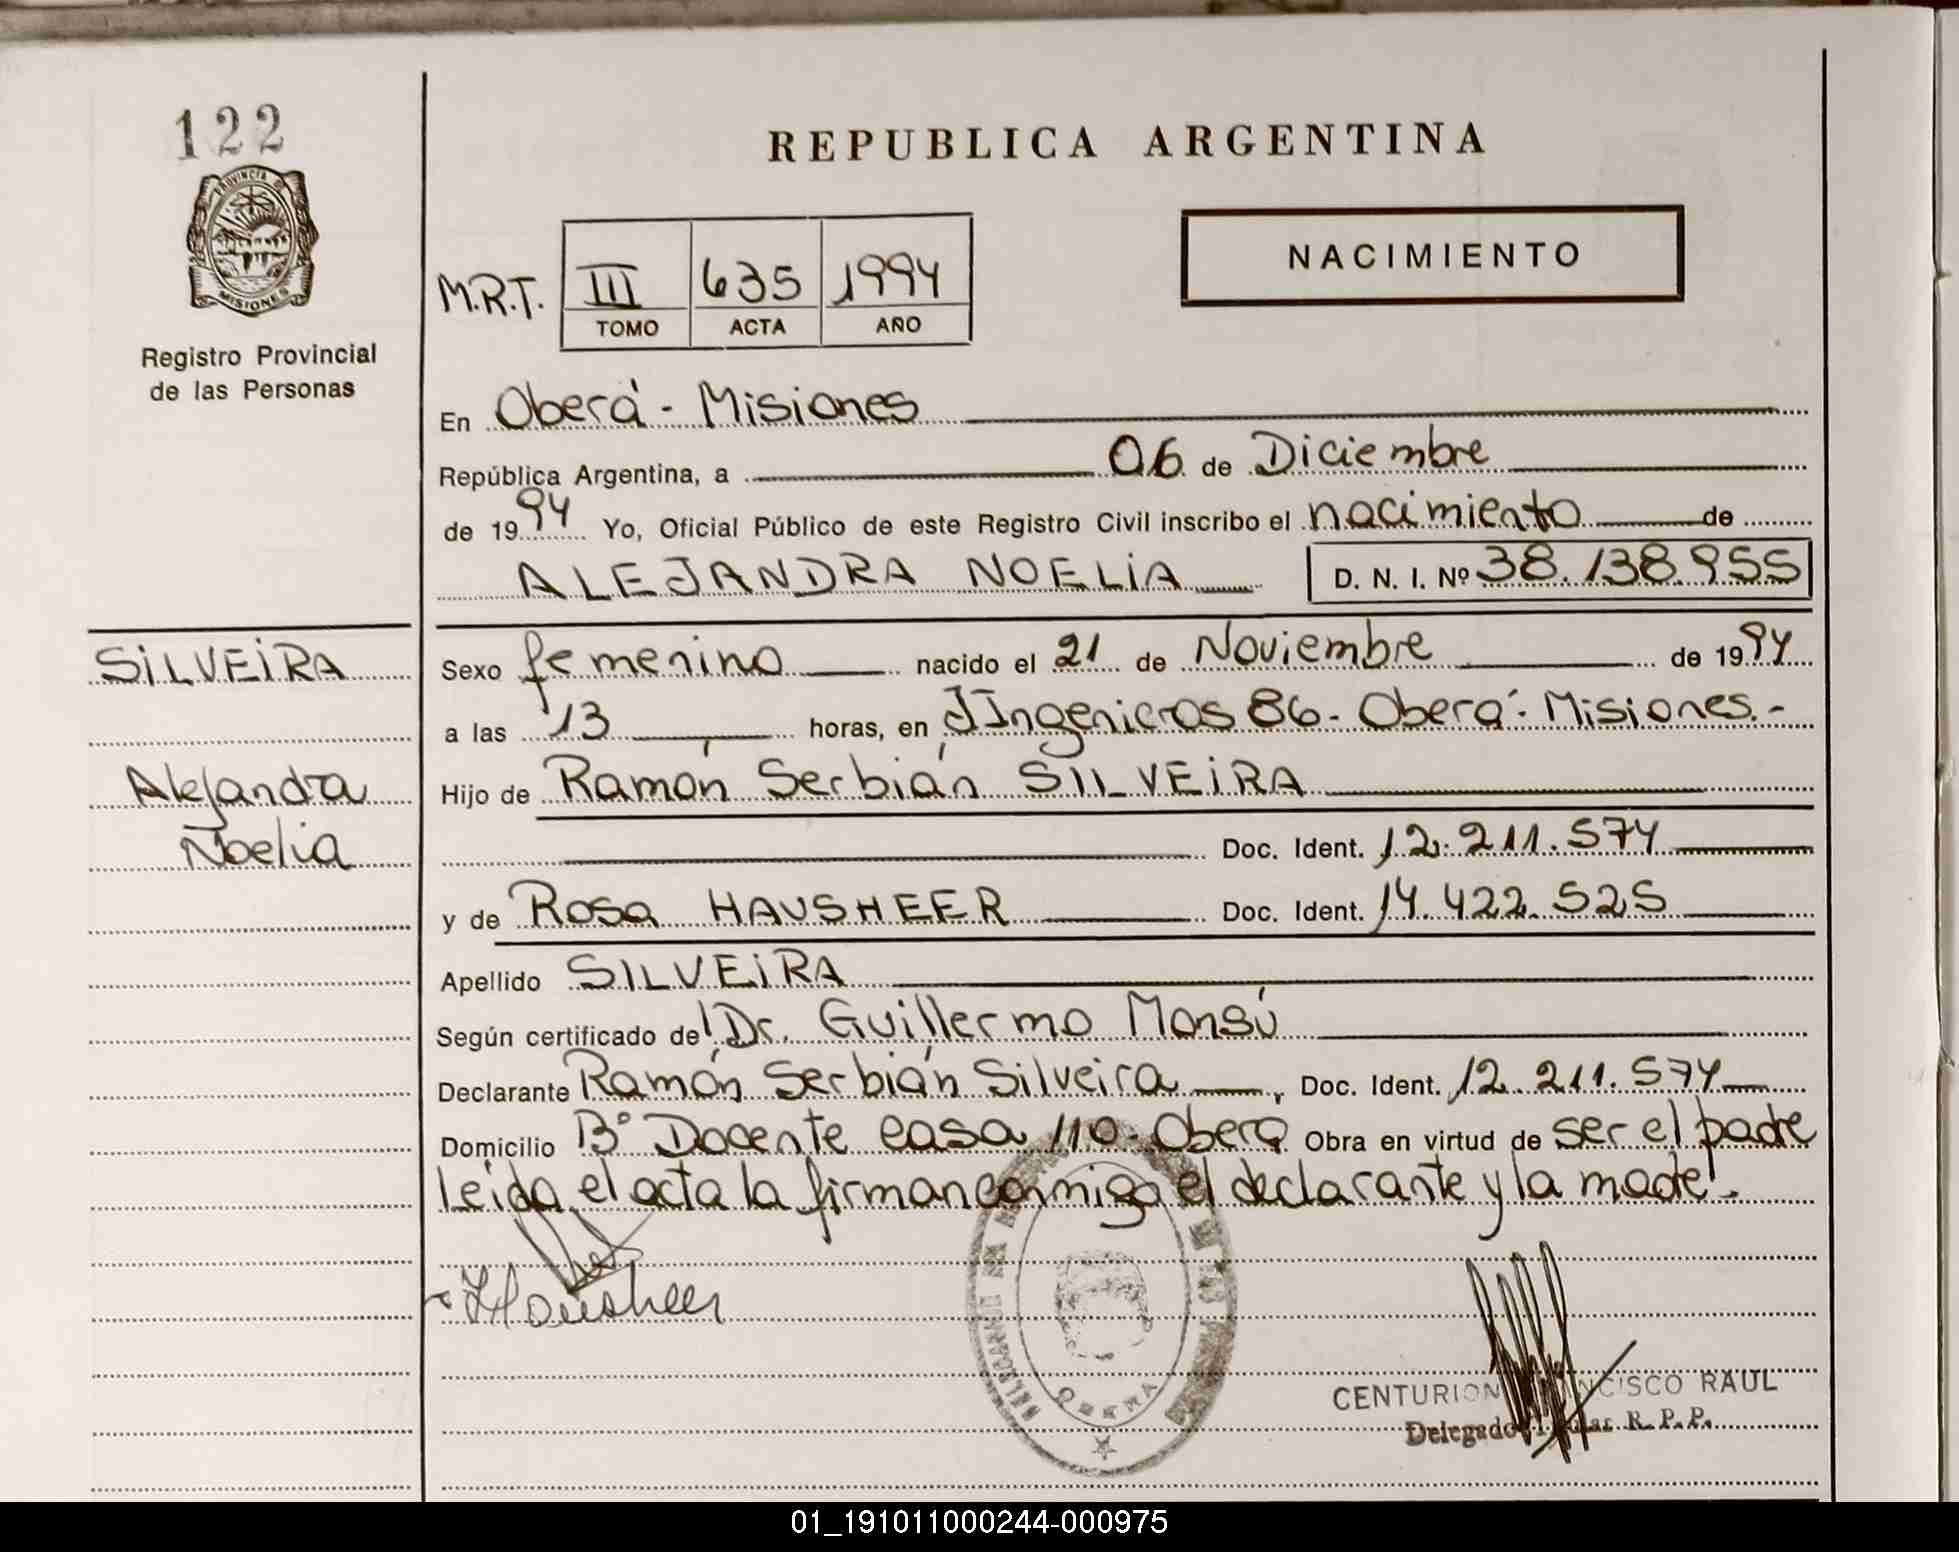 122
PROVINCIA DE
MISIONES
Registro Provincial
de las Personas
SILVEIRA
Alejandra
Noelia
REPUBLICA ARGENTINA
NACIMIENTO
M.R.T. III 635 1994
TOMO ACTA AÑO
En Oberá - Misiones
República Argentina, a 06 de Diciembre
de 1994 Yo, Oficial Público de este Registro Civil inscribo el nacimiento de
ALEJANDRA NOELIA D. N. I. Nº 38.138.955
Sexo femenino nacido el 21 de Noviembre de 1994
a las 13 horas, en JIngenieros 86 - Oberá - Misiones.-
Hijo de Ramón Serbián SILVEIRA
Doc. Ident. 12.211.574
y de Rosa HAUSHEER Doc. Ident. 14.422.525
Apellido SILVEIRA
Según certificado del Dr. Guillermo Monsú
Declarante Ramón Serbián Silveira, Doc. Ident. 12.211.574
Domicilio Bº Docente casa 110 - Oberá Obra en virtud de ser el padre
Leída el acta la firman conmigo el declarante y la madre.
Hausheer
OBERA
CENTURION RAUL
Delegado R. P. P.
01_191011000244-000975